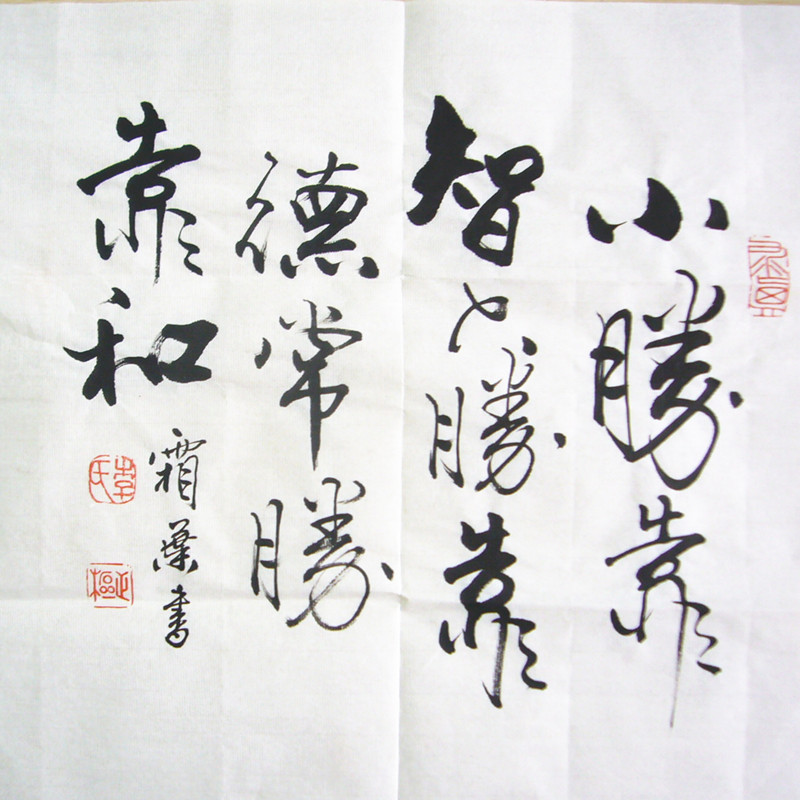 小勝靠
智大勝靠
德常勝
靠和
霜葉書
李氏